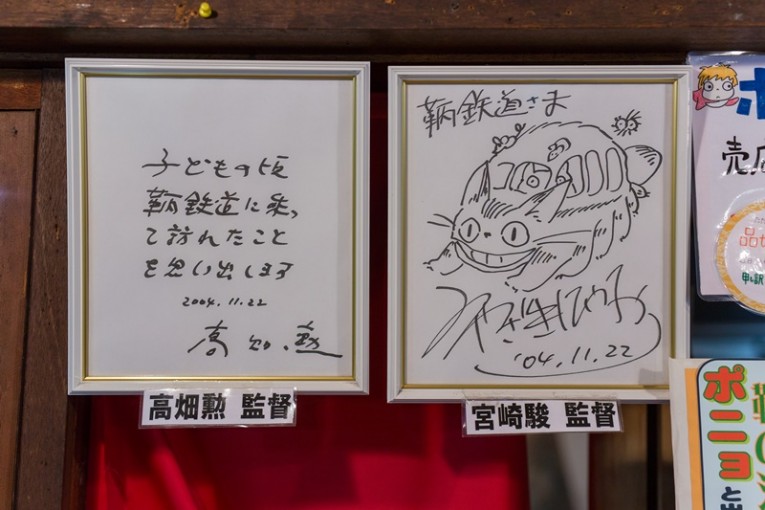 子どもの頃
鞆鉄道に乗っ
て訪れたこと
を思い出します
2004.11.22
高畑 勲
高畑勲 監督
鞆鉄道さま
みやざきはやお
'04.11.22
宮崎駿 監督
ポ
売店
品
申し訳
ポニョ
と出